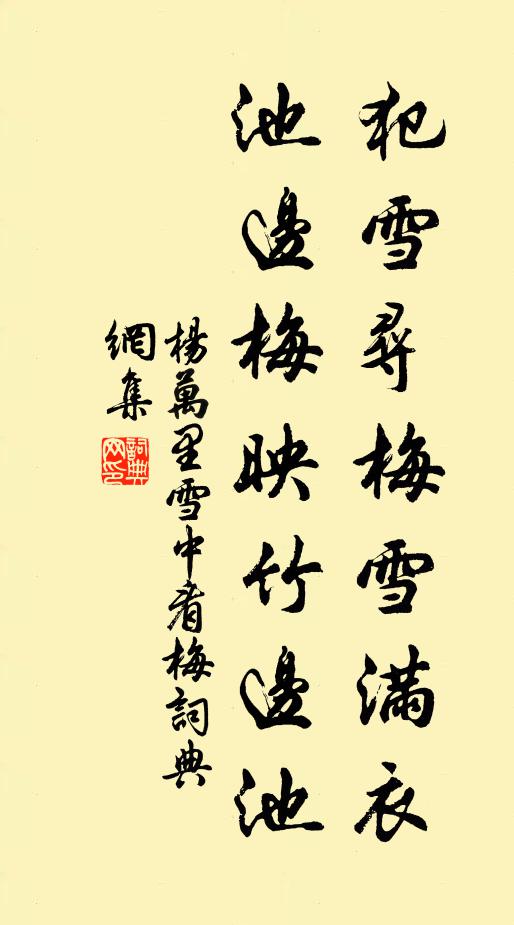 犯雪尋梅雪滿衣
池邊梅映竹邊池
楊萬里雪中看梅詞典
網集
詞典
网印